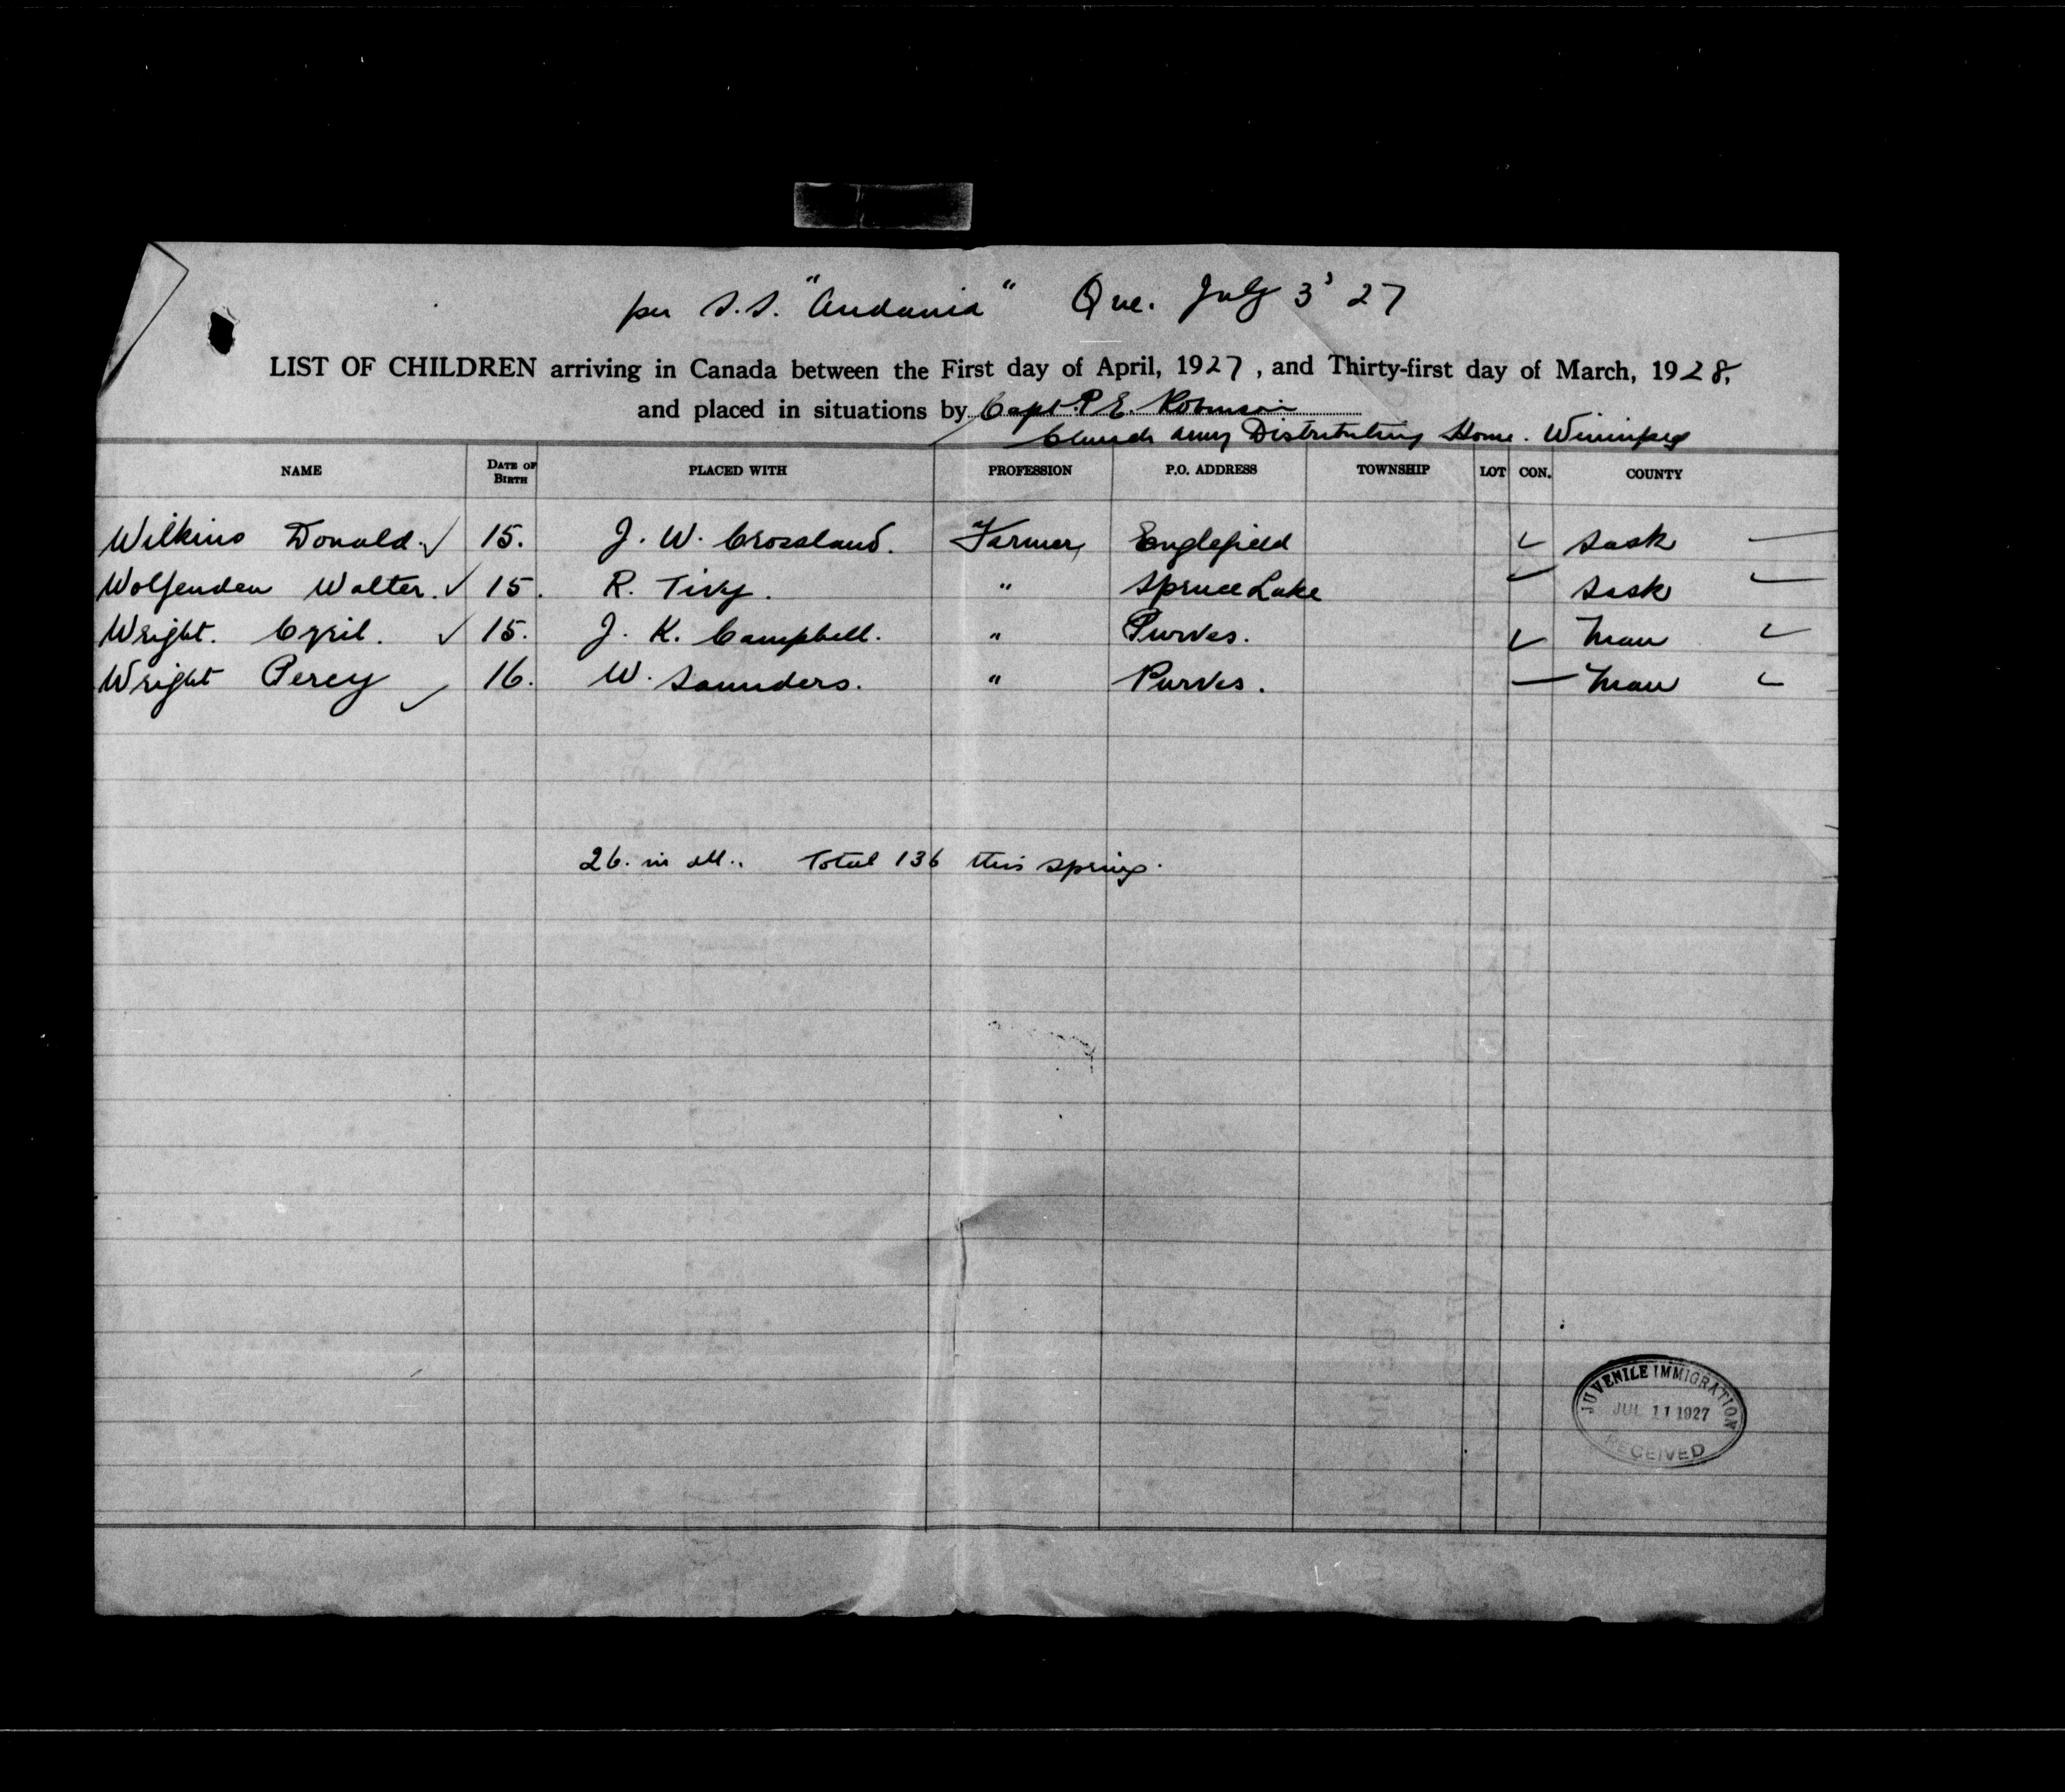 per S.S. "Andania" Que. July 3' 27
LIST OF CHILDREN arriving in Canada between the First day of April, 1927, and Thirty-first day of March, 1928,
and placed in situations by Capt. P. E. Robinson
Church Army Distributing Home. Winnipeg
NAME DATE OF BIRTH PLACED WITH PROFESSION P.O. ADDRESS TOWNSHIP LOT CON. COUNTY
Wilkins Donald. ✓ 15. J. W. Crossland. Farmer, Englefield ✓ Sask —
Wolfenden Walter. ✓ 15. R. Tivy. " Spruce Lake ✓ Sask ✓
Wright. Cyril. ✓ 15. J. K. Campbell. " Purves. ✓ Man ✓
Wright Percy ✓ 16. W. Saunders. " Purves. — Man ✓
26. in all.. Total 136 this spring.
JUVENILE IMMIGRATION
JUL 11 1927
RECEIVED